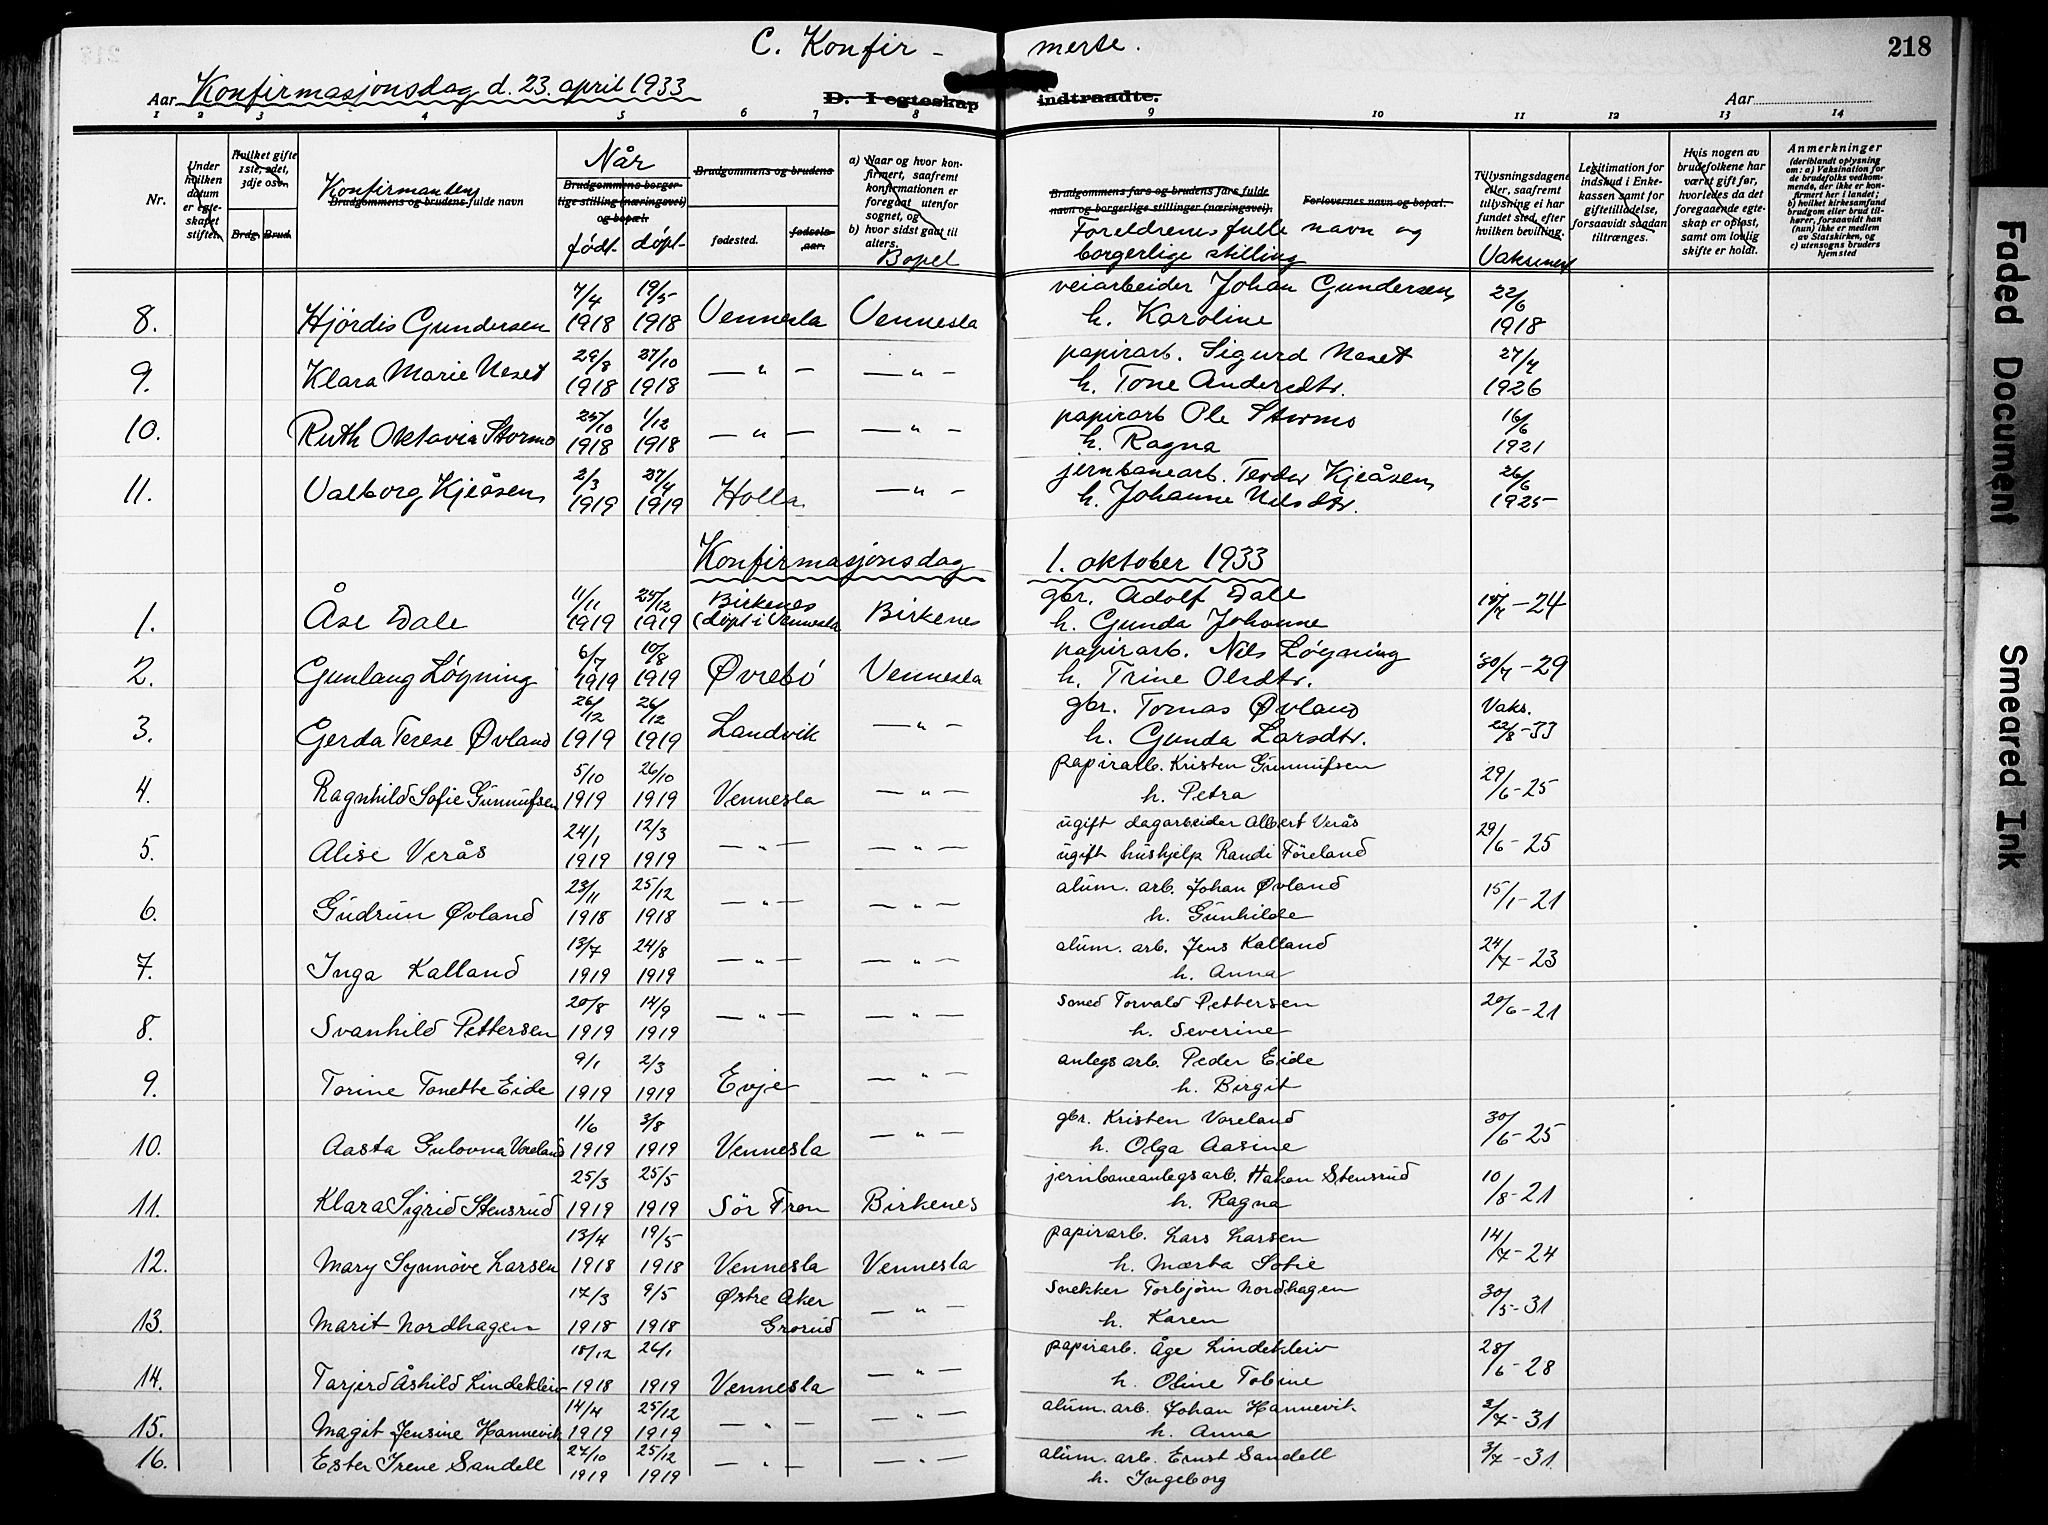 C. Konfir - merte.
218
Aar Konfirmasjonsdag d. 23. april 1933
D. I egteskap indtraadte.
Aar
1 2 3 4 5 6 7 8 9 10 11 12 13 14
Nr.
Under hvilken datum er egteskapet stiftet.
Hvilket gifte 1ste, 2det, 3dje osv.
Brdg. Brud.
Konfirmantens
Brudgommens og brudens fulde navn
Når
Brudgommens borgerlige stilling (næringsvei) og bopæl.
født. døpt.
Brudgommens og brudens
fødested. fødselsaar.
a) Naar og hvor konfirmert, saafremt konfirmationen er foregaat utenfor sognet, og
b) hvor sidst gaat til alters.
Bopel
Brudgommens fars og brudens fars fulde navn og borgerlige stillinger (næringsvei).
Foreldrenes fulle navn og borgerlige stilling
Forlovernes navn og bopæl.
Tillysningsdagene eller, saafremt tillysning ei har fundet sted, efter hvilken bevilling.
Vaksinert
Legitimation for indskud i Enkekassen samt for giftetilladelse, forsaavidt saadan tiltrænges.
Hvis nogen av brudefolkene har været gift før, hvorledes da det foregaaende egteskap er opløst, samt om lovlig skifte er holdt.
Anmerkninger
(deriblandt oplysning om: a) Vaksination for de brudefolks vedkommende, der ikke er konfirmert her i landet; b) hvilket kirkesamfund brudgom eller brud tilhører, forsaavidt han (hun) ikke er medlem av Statskirken, og c) utensogns bruders hjemsted
8. Hjördis Gundersen 7/4 1918 19/5 1918 Vennesla Vennesla veiarbeider Johan Gundersen h. Karoline 22/6 1918
9. Klara Marie Neset 29/8 1918 27/10 1918 — " — — " — papirarb. Sigurd Neset h. Tone Andersdtr. 27/7 1926
10. Ruth Oktavia Stormo 25/10 1918 1/12 1918 — " — — " — papirarb Ole Stormo h. Ragna 16/6 1921
11. Valborg Kjeåsen 2/3 1919 27/4 1919 Holla — " — jernbanearb. Teodor Kjeåsen h. Johanne Nilsdtr. 26/6 1925
Konfirmasjonsdag 1. oktober 1933
1. Åse Dale 11/11 1919 25/12 1919 Birkenes (døpt i Vennesla Birkenes gbr. Adolf Dale h. Gunda Johanne 15/7 – 24
2. Gunlaug Løgning 6/7 1919 10/8 1919 Øvrebö Vennesla papirarb. Nils Løgning h. Trine Olsdtr. 30/7 – 29
3. Gerda Terese Øvland 26/12 1919 26/12 1919 Landvik — " — gbr. Tomas Øvland h. Gunda Larsdtr. Vaks. 22/8 – 33
4. Ragnhild Sofie Gunnufsen 5/10 1919 26/10 1919 Vennesla — " — papirarb. Kristen Gunnufsen h. Petra 29/6 – 25
5. Alise Verås 24/1 1919 12/3 1919 — " — — " — ugift dagarbeider Albert Verås ugift hushjelp Randi Föreland 29/6 – 25
6. Gudrun Øvland 23/11 1918 25/12 1918 — " — — " — alum. arb. Johan Øvland h. Gunhilde 15/1 – 21
7. Inga Kalland 13/7 1919 24/8 1919 — " — — " — alum. arb. Jens Kalland h. Anna 24/7 – 23
8. Svanhild Pettersen 20/8 1919 14/9 1919 — " — — " — smed Torvald Pettersen h. Severine 20/6 – 21
9. Torine Tonette Eide 9/1 1919 2/3 1919 Evje — " — anlegsarb. Peder Eide h. Birgit
10. Aasta Gulovna Voreland 1/6 1919 3/8 1919 Vennesla — " — gbr. Kristen Voreland h. Olga Aasine 30/6 – 25
11. Klara Sigrid Stensrud 25/3 1919 25/5 1919 Sör Fron Birkenes jernbaneanlegsarb. Hakon Stensrud h. Ragna 10/8 – 21
12. Mary Synnöve Larsen 13/4 1918 19/5 1918 Vennesla Vennesla papirarb. Lars Larsen h. Marta Sofie 14/7 – 24
13. Marit Nordhagen 17/3 1918 9/5 1918 Østre Aker Grorud — " — Snekker Torbjörn Nordhagen h. Karen 30/5 – 31
14. Tarjerd Åshild Lindekleiv 15/12 1918 26/1 1919 Vennesla — " — papirarb. Åge Lindekleiv h. Oline Tobine 28/6 – 28
15. Magit Jensine Hannevik 14/4 1919 25/12 1919 — " — — " — alum. arb. Johan Hannevik h. Anna 2/7 – 31
16. Ester Irene Sandell 27/10 1919 25/12 1919 — " — — " — alum. arb. Ernst Sandell h. Ingeborg 3/7 – 31
Faded Document
Smeared Ink